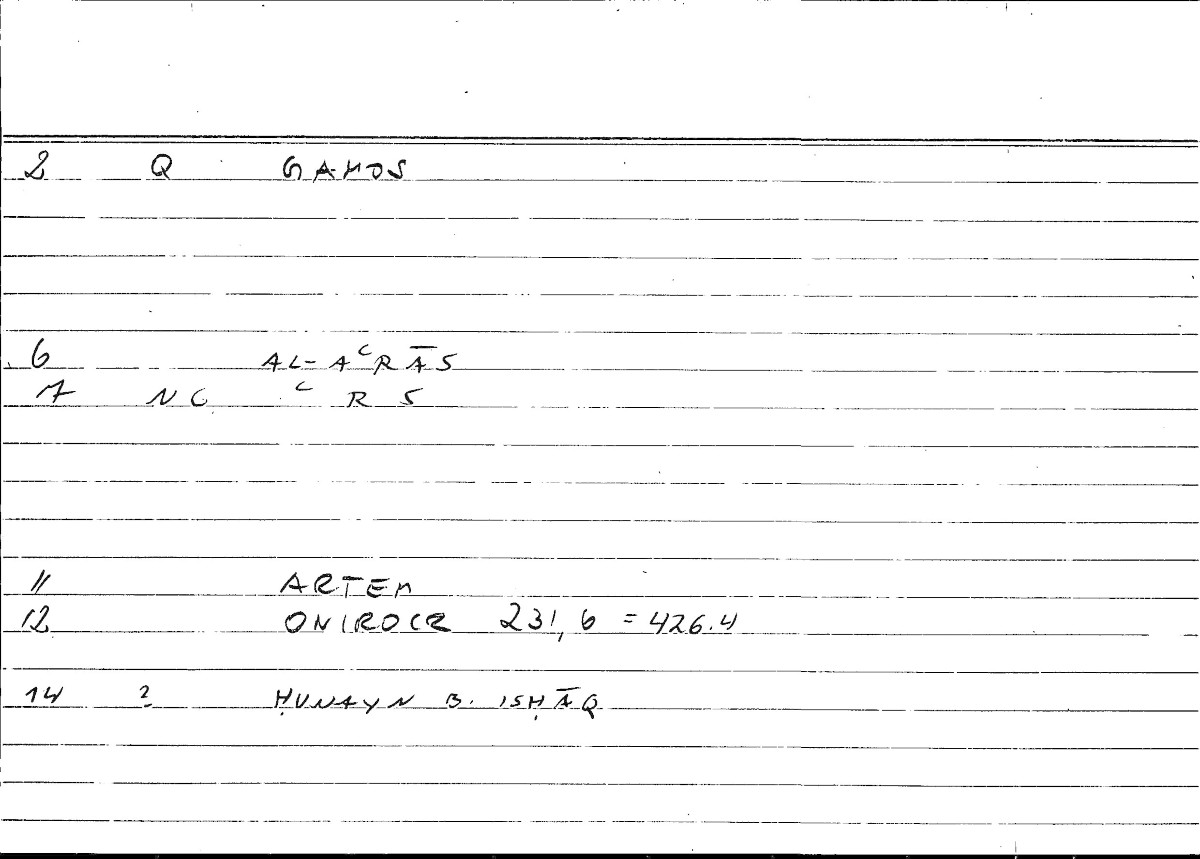 2 Q GAMOS
6 AL-AʿRĀS
7 NC ʿ R S
11 ARTEM
12 ONIROCR 231,6 = 426.4
14 2 ḤUNAYN B. ISḤĀQ